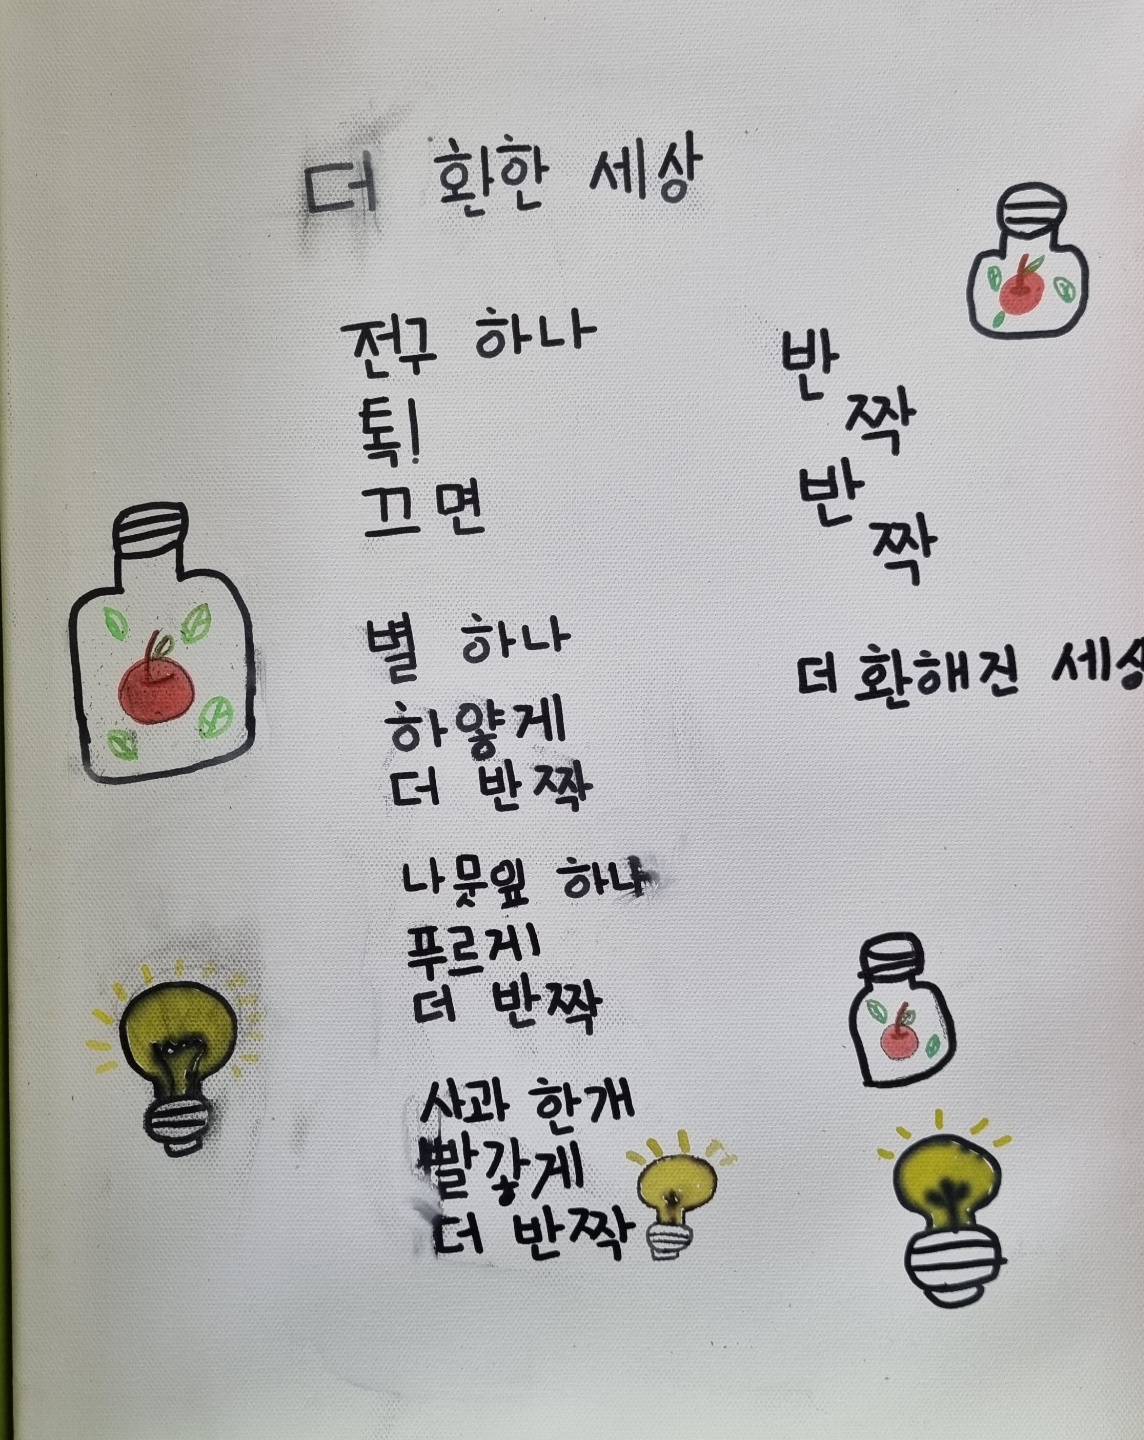 더 환한 세상
전구 하나
톡!
끄면
별 하나
하얗게
더 반짝
나뭇잎 하나
푸르게
더 반짝
사과 한개
빨갛게
더 반짝
반
짝
반
짝
더 환해진 세상